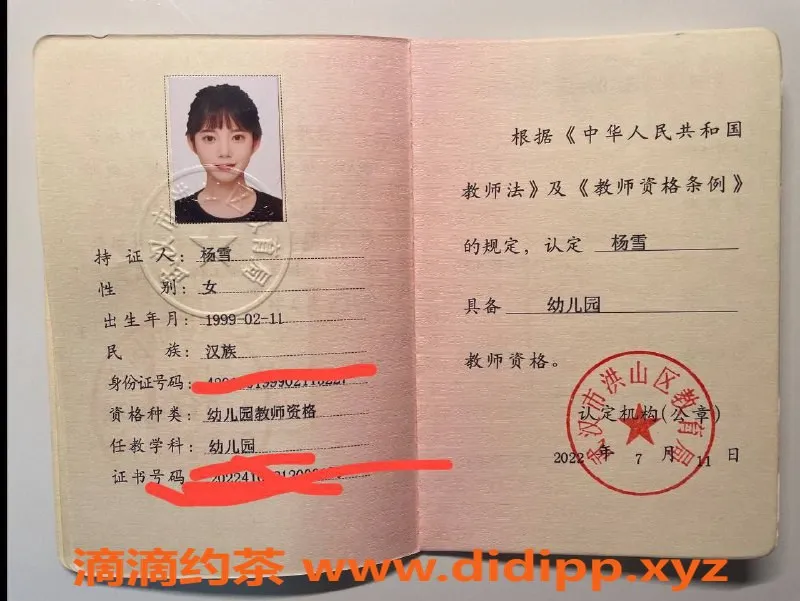 持 证 人: 杨雪
性 别: 女
出生年月: 1999-02-11
民 族: 汉族
身份证号码:
资格种类: 幼儿园教师资格
任教学科: 幼儿园
证书号码
根据《中华人民共和国
教师法》及《教师资格条例》
的规定, 认定 杨雪
具备 幼儿园
教师资格。
武汉市洪山区教育局
认定机构(公章)
2022 年 7 月 11 日
滴滴约茶 www.didipp.xyz